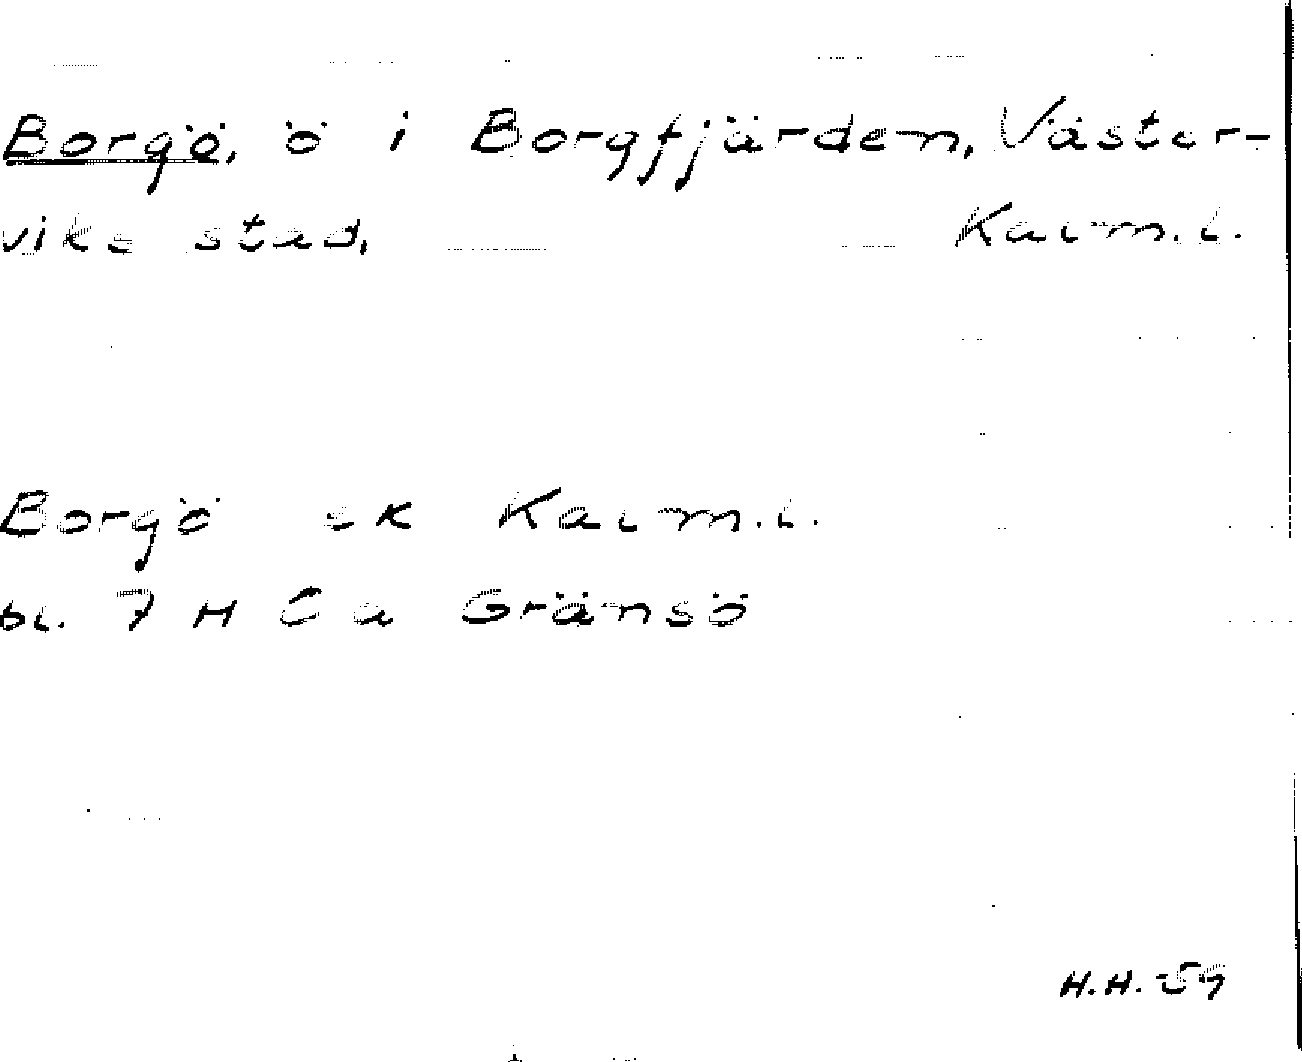 Borgö, ö i Borgfjärden, Väster-
viks stad, Kalm.l.
Borgö ek Kalm.l.
bl. 7 H C a Gränsö
H.H. 59